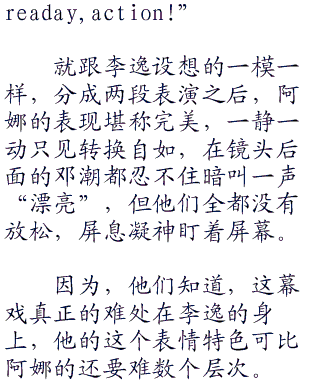 readay,action!”
就跟李逸设想的一模一
样，分成两段表演之后，阿
娜的表现堪称完美，一静一
动只见转换自如，在镜头后
面的邓潮都忍不住暗叫一声
“漂亮”，但他们全都没有
放松，屏息凝神盯着屏幕。
因为，他们知道，这幕
戏真正的难处在李逸的身
上，他的这个表情特色可比
阿娜的还要难数个层次。